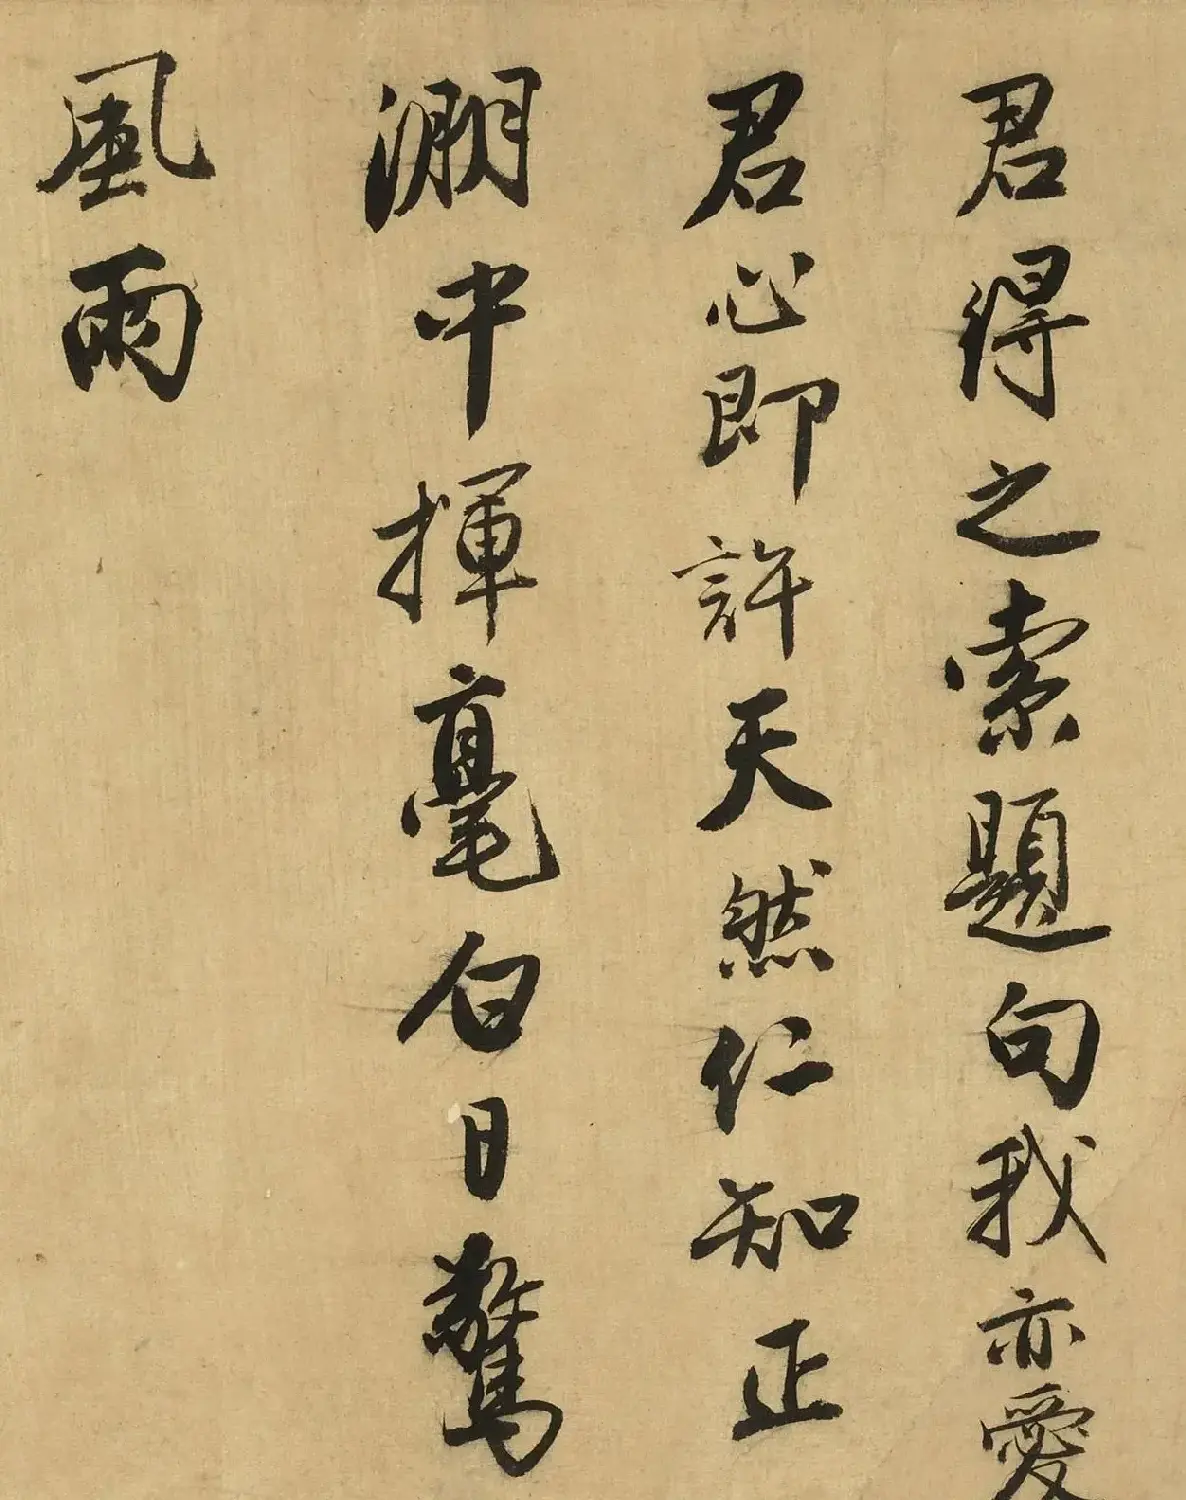 君得之索題句我亦愛
君心即許天然仁知正
淵中揮毫白日驚
風雨